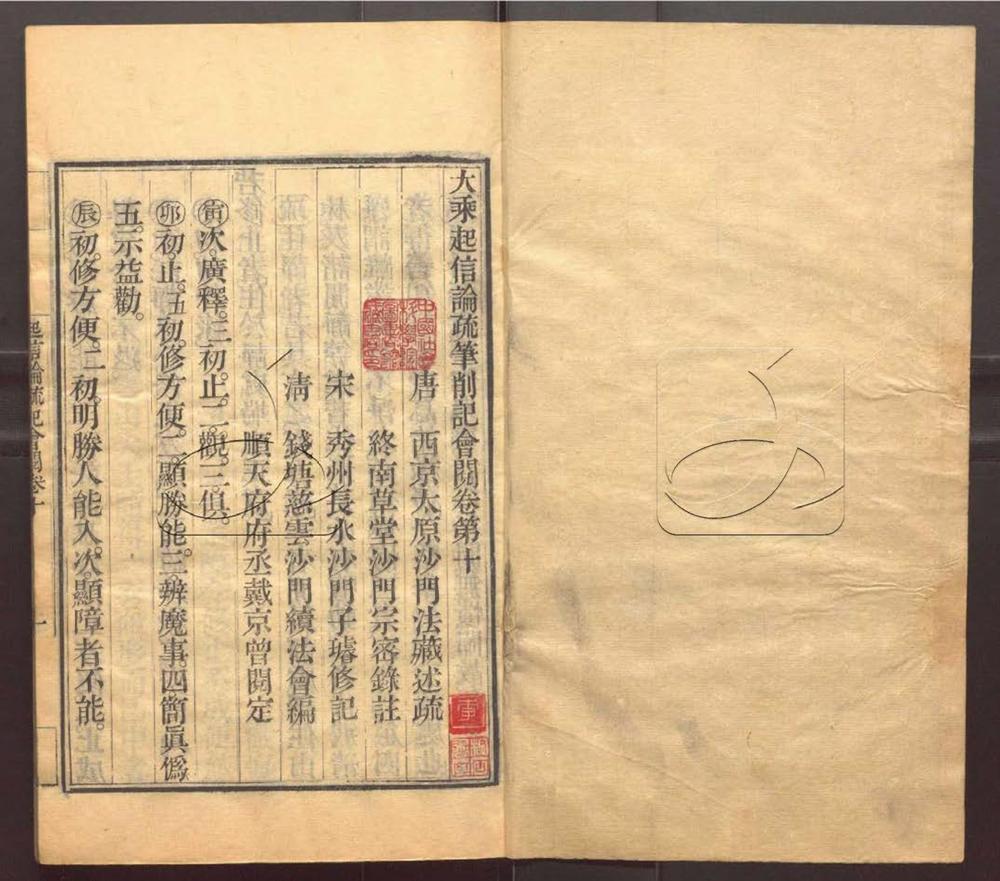 大乘起信論疏筆削記會閱卷第十
唐　西京太原沙門法藏述疏
終南草堂沙門宗密錄註
宋　秀州長水沙門子璿修記
清　錢塘慈雲沙門續法會編
順天府府丞戴京曾閱定
寅次。廣釋。三初。止。二。觀。三。俱。
夘初。止。五初。修方便。二。顯勝能。三。辨魔事。四。簡眞僞
五。示益勸。
辰初。修方便。二初。明勝人能入。次。顯障者不能。
起信論疏記會閱卷十